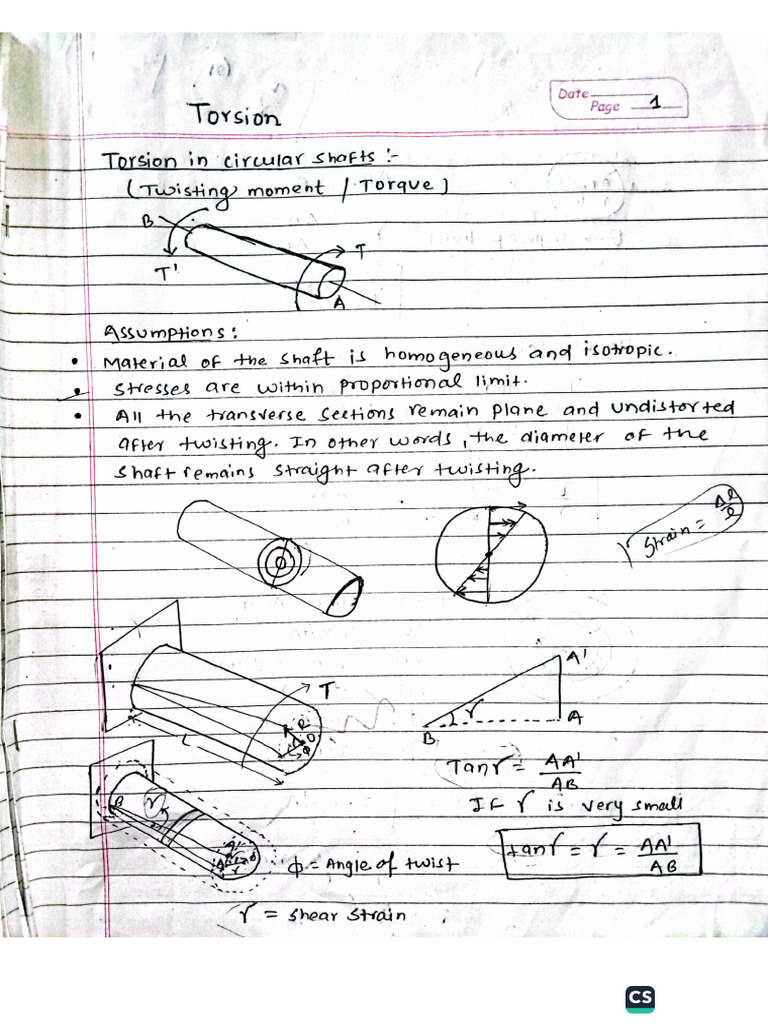 Torsion
Date
Page 1
Torsion in circular shafts :-
(Twisting moment / Torque)
B
T'
T
A
Assumptions:
• Material of the shaft is homogeneous and isotropic.
• Stresses are within proportional limit.
• All the transverse sections remain plane and undistorted
after twisting. In other words, the diameter of the
shaft remains straight after twisting.
strain = Δl/l
T
L
R
A'
γ
B
A
Tanγ = AA'/AB
IF γ is very small
tanγ = γ = AA'/AB
B
γ
A'
ϕ = Angle of twist
γ = shear strain
CS